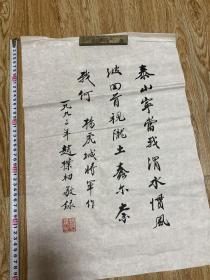 泰山寧當我渭水慣風
波回首視隴土蠢尔柰
我何 楊虎城將軍作
一九九三年趙樸初敬録